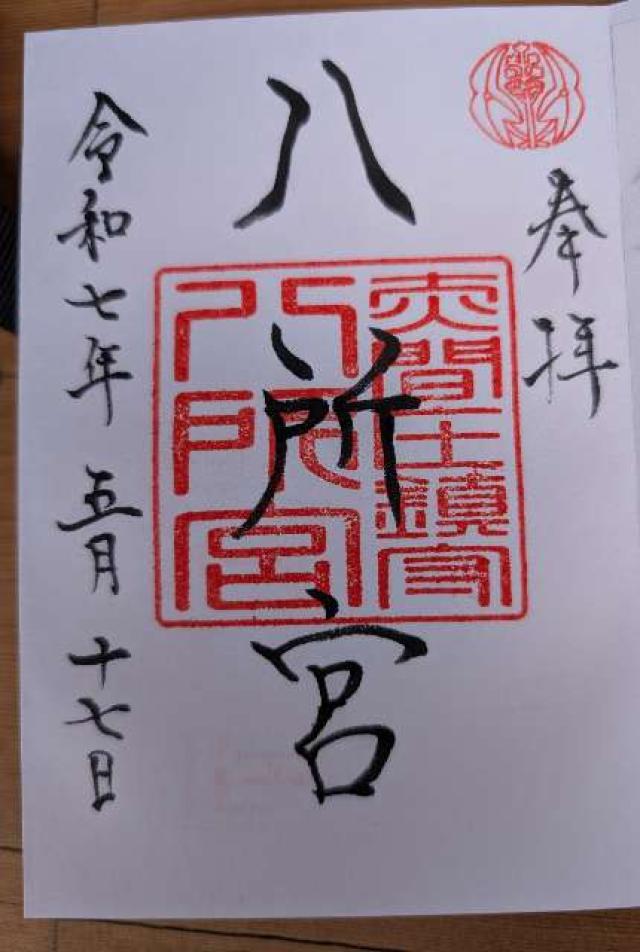 奉拝
八所宮
赤間
鎮守
八所宮
令和七年 五月 十七日